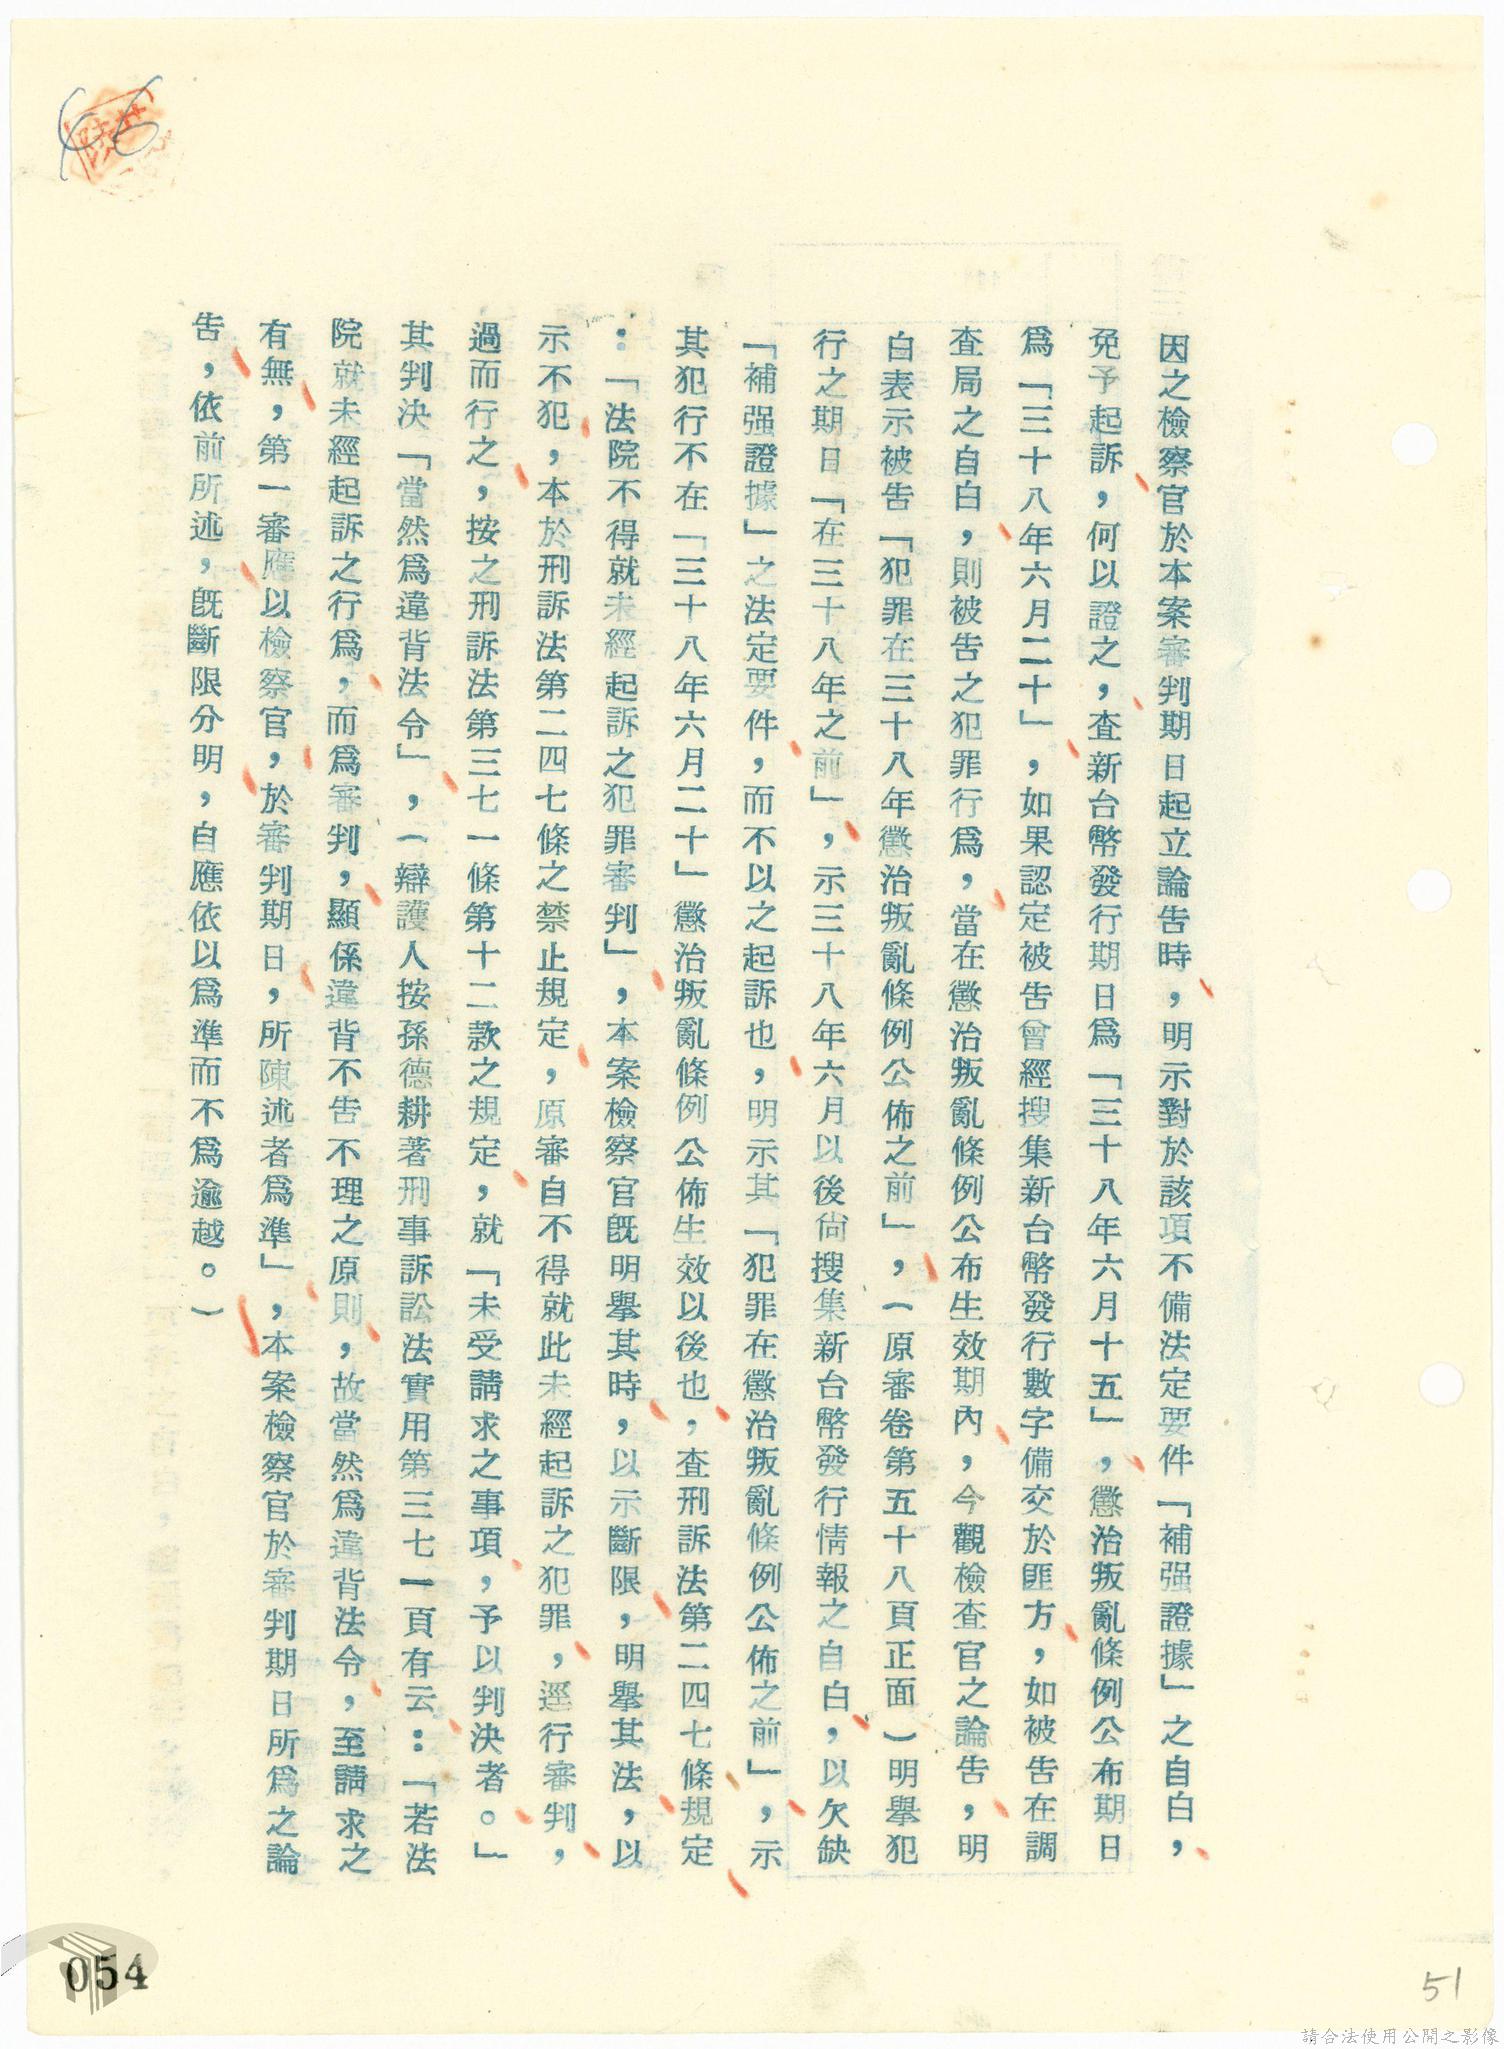 因之檢察官於本案審判期日起立論告時，明示對於該項不備法定要件「補强證據」之自白，
免予起訴，何以證之，査新台幣發行期日爲「三十八年六月十五」，懲治叛亂條例公布期日
爲「三十八年六月二十」，如果認定被告曾經搜集新台幣發行數字備交於匪方，如被告在調
査局之自白，則被告之犯罪行爲，當在懲治叛亂條例公布生效期內，今觀檢査官之論告，明
白表示被告「犯罪在三十八年懲治叛亂條例公佈之前」，（原審卷第五十八頁正面）明舉犯
行之期日「在三十八年之前」，示三十八年六月以後尙搜集新台幣發行情報之自白，以欠缺
「補强證據」之法定要件，而不以之起訴也，明示其「犯罪在懲治叛亂條例公佈之前」，示
其犯行不在「三十八年六月二十」懲治叛亂條例公佈生效以後也，査刑訴法第二四七條規定
：「法院不得就未經起訴之犯罪審判」，本案檢察官旣明舉其時，以示斷限，明舉其法，以
示不犯，本於刑訴法第二四七條之禁止規定，原審自不得就此未經起訴之犯罪，逕行審判，
過而行之，按之刑訴法第三七一條第十二款之規定，就「未受請求之事項，予以判決者。」
其判決「當然爲違背法令」，（辯護人按孫德耕著刑事訴訟法實用第三七一頁有云：「若法
院就未經起訴之行爲，而爲審判，顯係違背不告不理之原則，故當然爲違背法令，至請求之
有無，第一審應以檢察官，於審判期日，所陳述者爲準」，本案檢察官於審判期日所爲之論
告，依前所述，旣斷限分明，自應依以爲準而不爲逾越。）
054
51
請合法使用公開之影像